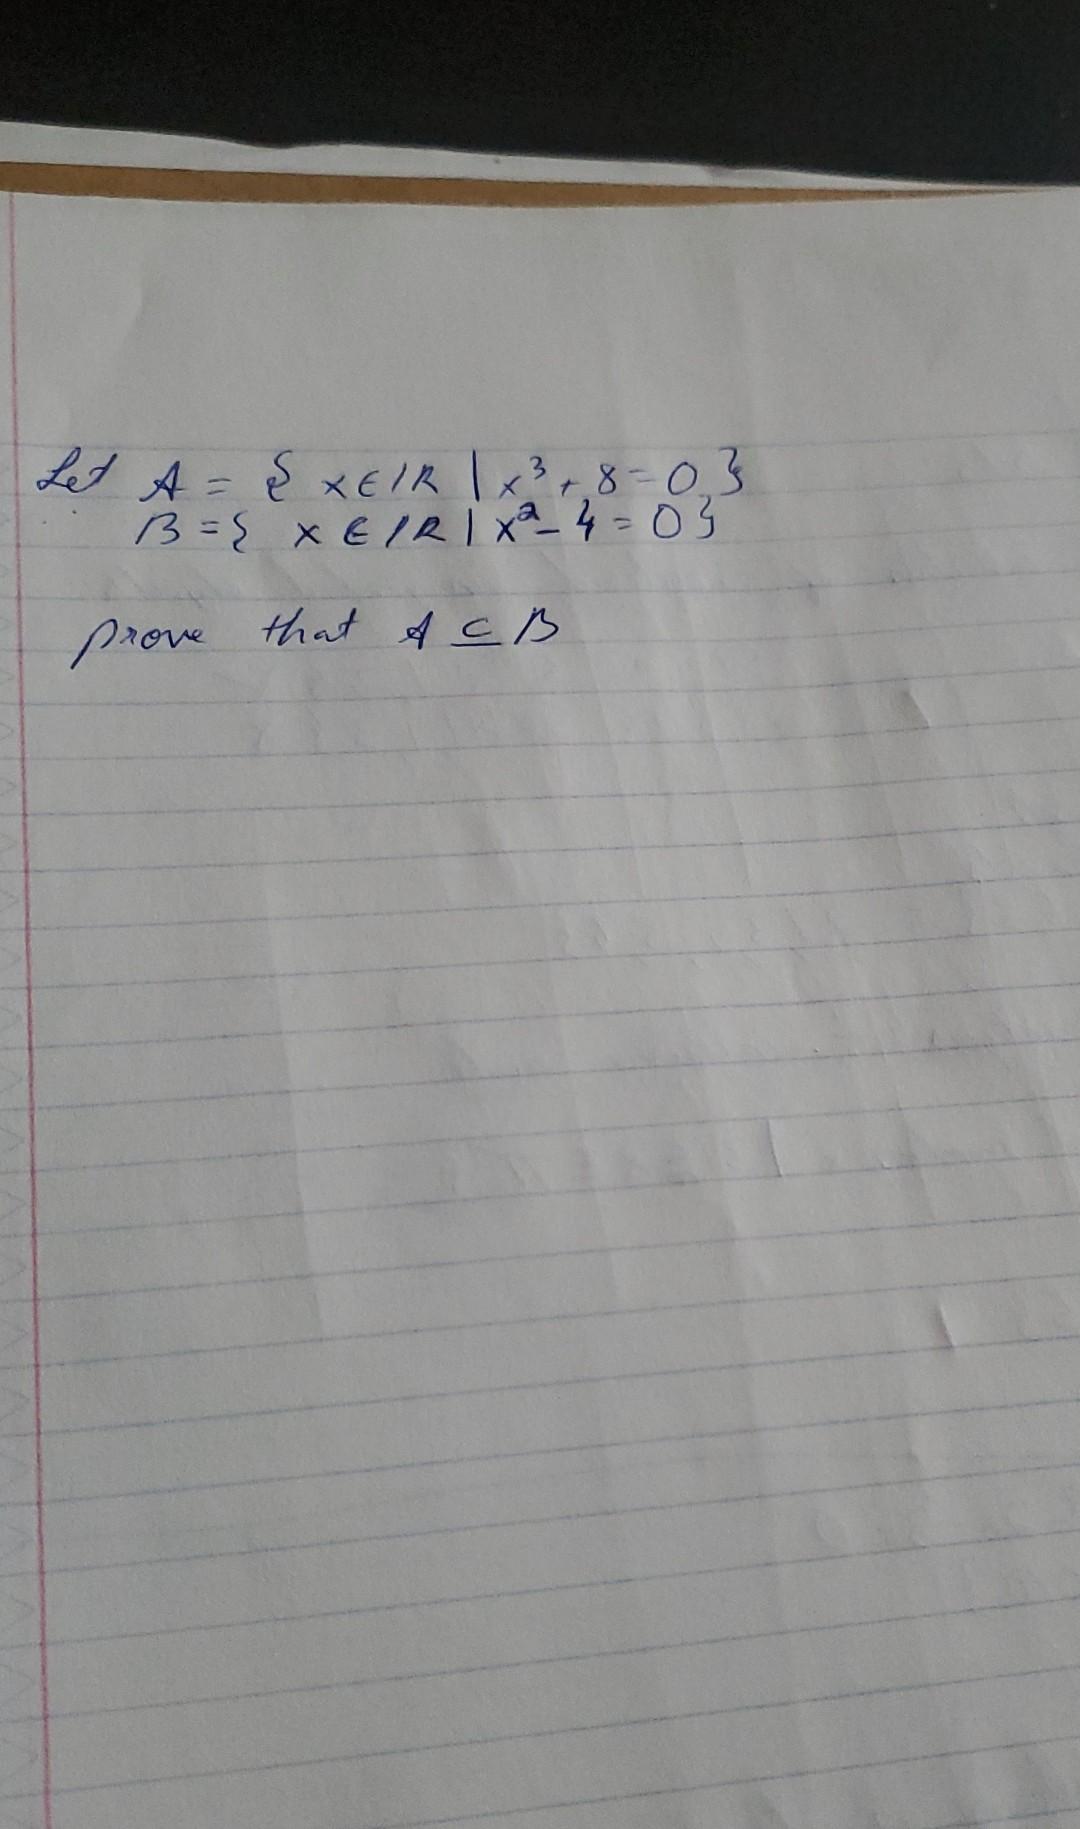 Let A = { x ∈ ℝ | x³ + 8 = 0 }
B = { x ∈ ℝ | x² - 4 = 0 }
prove that A ⊆ B